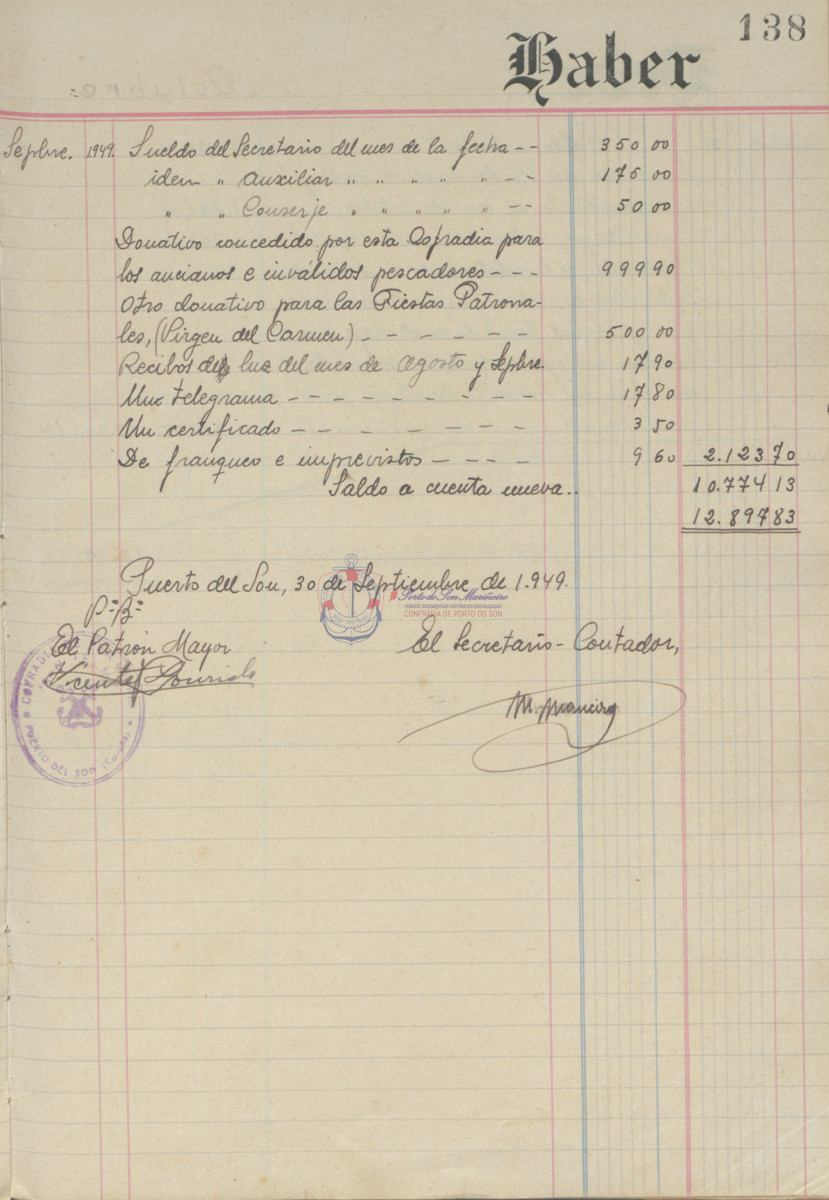 138
Haber
Sepbre. 1949. Sueldo del Secretario del mes de la fecha -- 350 00
iden " Auxiliar " " " " " -- 175 00
" " Conserje " " " " " -- 50 00
Donativo concedido por esta Cofradia para
los ancianos e inválidos pescadores --- 999 90
Otro donativo para las Fiestas Patrona-
les, (Virgen del Carmen) ------ 500 00
Recibos de luz del mes de Agosto y Sepbre. 17 90
Un telegrama --------- 17 80
Un certificado ------ 3 50
De franqueo e imprevistos ---- 9 60 2.123 70
Saldo a cuenta nueva.. 10.774 13
12.897 83
Puerto del Son, 30 de Septiembre, de 1.949.
Porto do Son Mariñeiro
FONDOS DOCUMENTAIS HISTÓRICOS DIXITALIZADOS
CONFRARÍA DE PORTO DO SON
Vº Bº
El Patrón Mayor El Secretario-Contador,
Vicente
M. Maneiro
PUERTO DEL SON (Coruña)